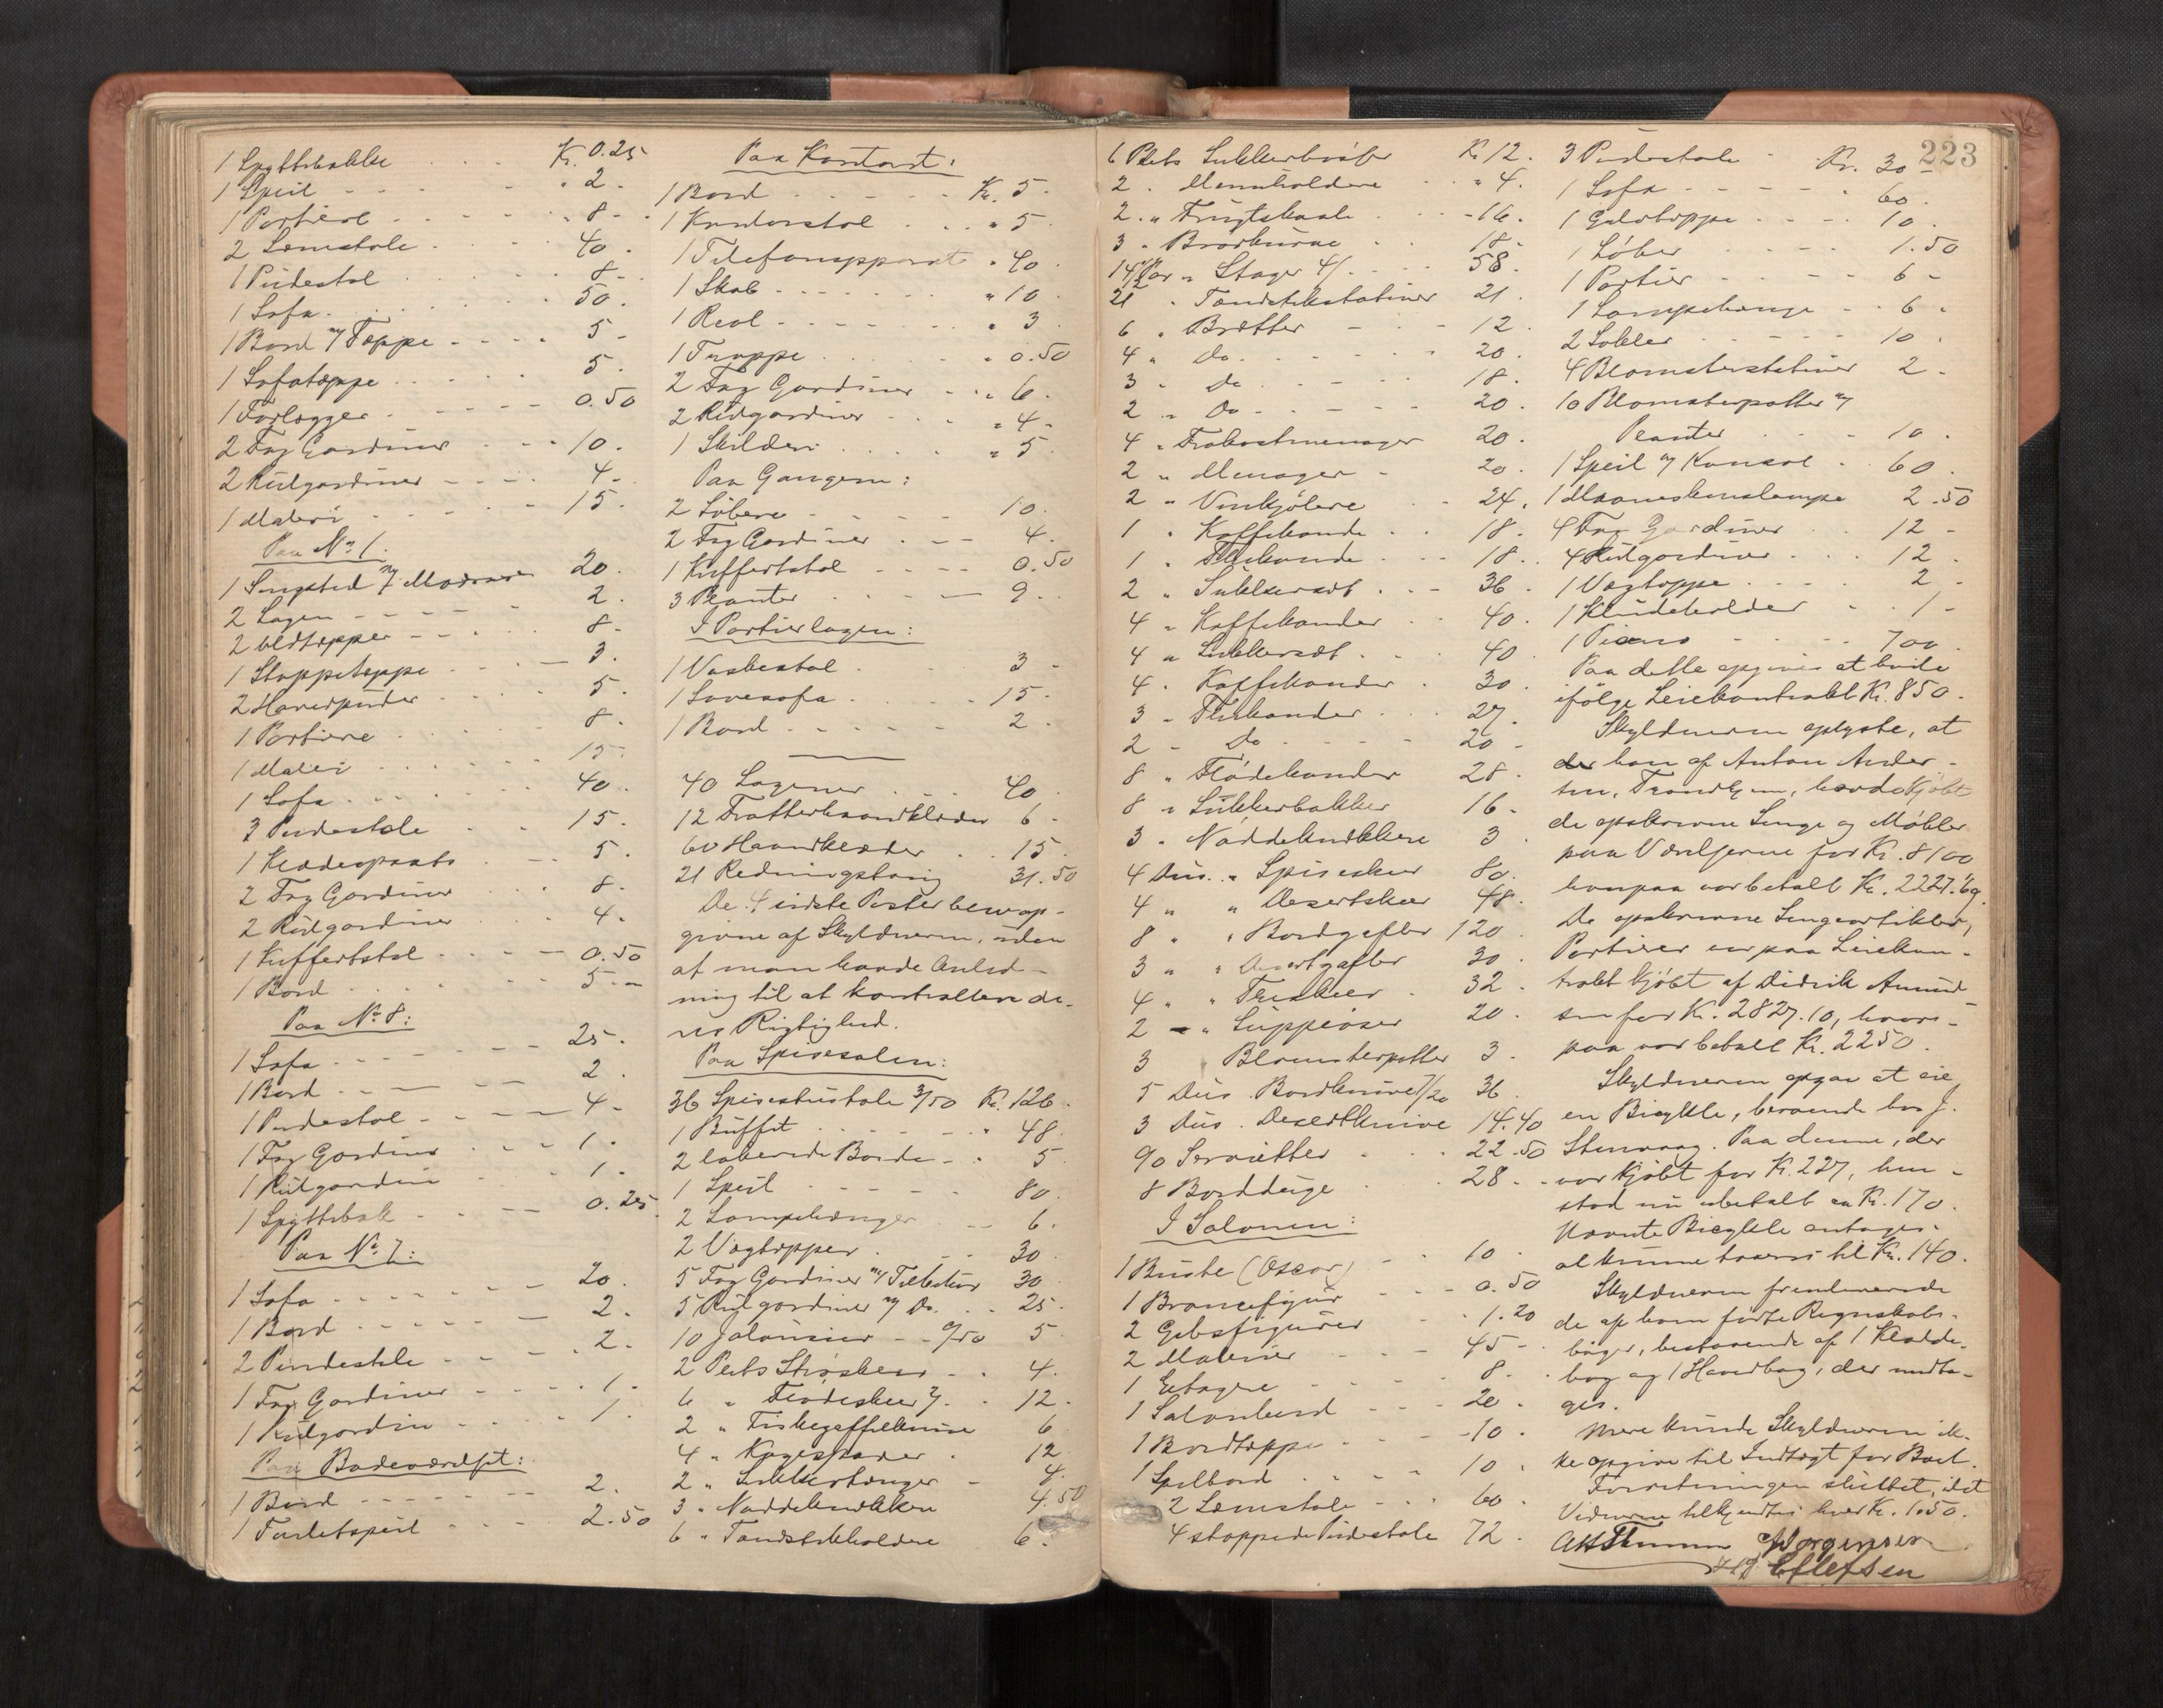 1 Spyttebakke . . . Kr. 0.25
1 Speil - - - - " 2.
1 Portiere - - - - " 8 -
2 Lænestole - - - 40.
1 Pidestol - - - 8 -
1 Sofa - - - 50.
1 Bord m/ Tæppe - - - 5 -
1 Sofatæppe - - - 5.
1 Forlægger - - - 0.50
2 Fag Gardiner - - - 10.
2 Rulgardiner - - - 4 -
1 Maleri - - - 15.
Paa No 1.
1 Sengsted m/ Madrasser 20.
2 Lagen - - - 2.
2 Uldtæpper - - - 8 -
1 Stoppetæppe - - - 3.
2 Hovedpuder - - - 5.
1 Portiere - - - 8.
1 Maleri - - - 15.
1 Sofa - - - 40.
3 Pidestole - - - 15.
1 - - - 5.
2 Fag Gardiner - - - 8.
2 Rulgardiner - - - 4.
1 Kuffertstol - - - 0.50
1 Bord - - - 5 -
Paa No 8:
1 Sofa - - - 25.
1 Bord - - - 2.
1 Pidestol - - - 4 -
1 Fag Gardiner - - - 1.
1 Rulgardin - - - 1.
1 Spyttebak - - - 0.25
Paa No 7:
1 Sofa - - - 20.
1 Bord - - - 2.
2 Pindestole - - - 2.
1 Fag Gardiner - - - 1.
1 Rulgardin - - - 1.
Paa Badeværelset:
1 Bord - - - 2.
1 Toiletspeil - - - 2.50
Paa Kontoret:
1 Bord - - - Kr. 5.
1 Kontorstol - - - " 5
1 Telefonapparat " 40
1 Skab - - - " 10
1 Reol - - - " 3
1 Trappe - - - " 0.50
2 Fag Gardiner - - " 6.
2 Rulgardiner - - - " 4 -
1 Skilderi - - - " 5
Paa Gangen:
2 Löbere - - - 10.
2 Fag Gardiner - - - 4.
1 Kuffertstol - - - 0.50
3 Planter - - - 9.
I Portierlogen:
1 Vaskestol - - - 3 -
1 Sovesofa - - - 15.
1 Bord - - - 2.
40 Lagener - - - 40
12 Frotterhaandklæder 6 -
60 Haandklæder - - 15
21 Redningstoug 31.50
De 4 sidste Poster blev op-
givne af Skyldneren, uden
at man havde Anled-
ning til at kontrollere de-
res Rigtighed.
Paa Spisesalen:
36 Spisestuestole 3/50 Kr. 126.
1 Buffet - - - " 48.
2 lakerede Borde - " 5
1 Speil - - - 80.
2 Lampehænger - - 6.
2 Vægtæpper - - - 30
5 Fag Gardiner m/ Tilbehör 30
5 Rulgardiner m/ Do. - - 25.
10 Jalousier - - 0/50 5
2 Plets Ströskeer - - 4.
6 " Flödeskeer 2/ - 12.
2 " Fiskegaffelknive 6
4 " Kagespader - 12
2 " Sukkertænger - 4.
3 " Nöddeknækkere 4.50
6 " Tandstikholdere 6.
6 Plets Kr 12.
2 " Menuholdere - - " 4.
2 " Frugtskaale - - - 16.
3 " Brödkurve - - 18 -
14½ Par " Stager 4/ - - 58.
21 " Tændstikstativer 21.
6 " Brætter - - - 12.
4 " Do. - - - 20.
3 " Do - - - 18.
2 " Do - - - 20.
4 " Frokostmenager 20.
2 " Menager - 20.
2 " Vinkjölere - 24.
1 " Kaffekande - - 18.
1 " Thekande - - 18.
2 " Sukkersæt - - - 36.
4 " Kaffekander - - 40.
4 " Sukkersæt - - - 40
4 " Kaffekander - 30.
3 " Thekander - - 27.
2 " Do - - - 20 -
8 " Flödekander 28.
8 " Sukkerbakker 16 -
3 " Nöddeknækkere 3
4 Dus. " Spiseskeer 80.
4 " " Desertskeer 48.
8 " " Bordgafler 120
3 " " Desertgafler 30
4 " " Theskeer - 32.
2 - " Suppeöser 20.
3 Blomsterpotter 3.
5 Dus. Bordknive 7/20 36.
3 Dus. Desertknive 14.40
90 Servietter - - - 22.50
8 Bordduge - - - 28.
I Salonen:
1 Buste (Oscar) - - 10.
1 Broncefigur - - - 0.50
2 Gibsfigurer - - - 1.20
2 Malerier - - - 45 -
1 Etagere - - - 8.
1 Salonbord - - - 20.
1 Bordtæppe - - - 10.
1 Spilbord - - - 10.
2 Lænestole - - - 60.
4 stoppede Pidestole 72.
223
3 Pidestole - Kr. 30 -
1 Sofa - - - 60.
1 Gulvtæppe - - - 10.
1 Löber - - - 1.50
1 Portier - - - 6 -
1 Lampehænge - - 6 -
2 Sokler - - - 10.
4 Blomsterstativer 2 -
10 Blomsterpotter m/
Planter - - 10.
1 Speil m/ Konsol - 60.
1 Maaneskinslampe 2.50
4 Fag Gardiner - 12 -
4 Rulgardiner - - 12.
1 Vægtæppe - - - 2 -
1 - - 1 -
1 Piano - - - 700.
Paa dette opgives at hvile
ifölge Leiekontrakt Kr. 850.
Skyldneren oplyste, at
der han af Anton Ander-
sen, Trondhjem, havde kjöbt
de opskrevne Senge og Möbler
paa Værelserne for Kr. 8100
hvorpaa var betalt Kr. 2227.69.
De opskrevne Sengeartikler,
Portierer er paa Leiekon-
trakt kjöbt af Didrik Amund-
sen for Kr. 2827.10, hvor-
paa var betalt Kr. 2250.
Skyldneren opgav at eie
en Bicykle, beroende hos J.
Stenvaag. Paa denne, der
var kjöbt for Kr. 227, hen-
stod nu ubetalt ca Kr. 170.
Nævnte Bicykle antages
at kunne taxeres til Kr. 140.
Skyldneren fremleverede
de af ham förte Regnskabs-
böger, bestaaende af 1 Kladde-
bog og 1 Hovedbog, der modta-
ges.
Mere kunde Skyldneren ik-
ke opgive til Indtægt for Boet.
Forretningen sluttet, idet
Vidnerne tilkjendtes hver Kr. 1.50.
Jörgensen
Ellefsen